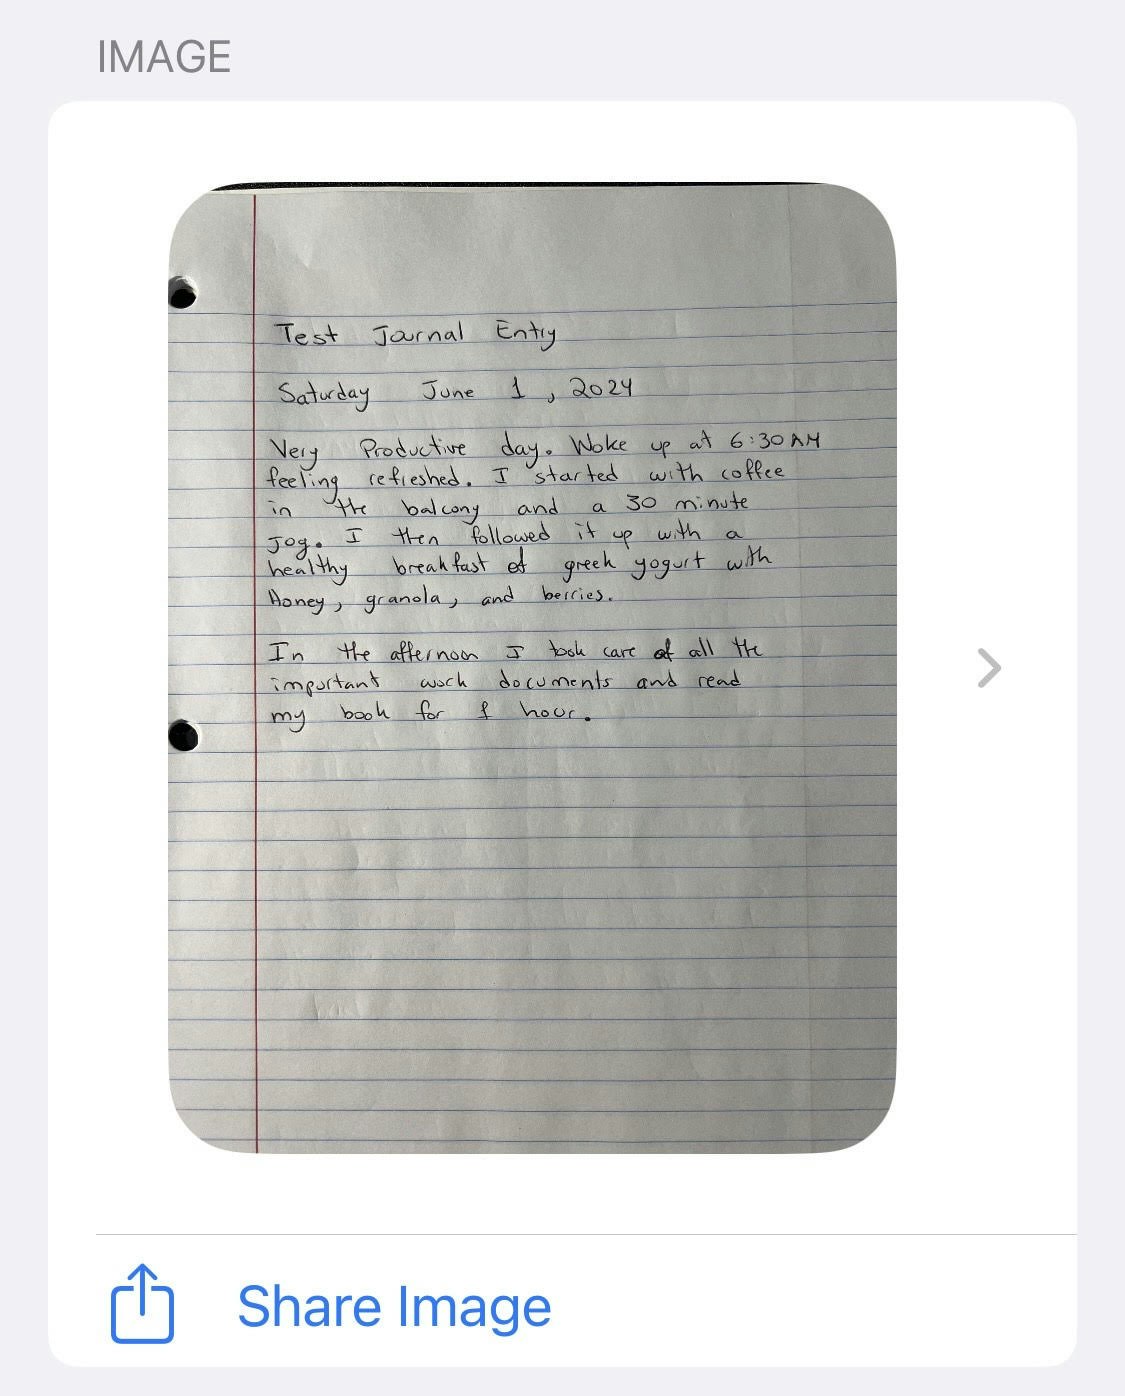 IMAGE
Test Journal Entry
Saturday June 1, 2024
Very Productive day. Woke up at 6:30 AM
feeling refreshed. I started with coffee
in the balcony and a 30 minute
Jog. I then followed it up with a
healthy breakfast of greek yogurt with
Honey, granola, and berries.
In the afternoon I took care of all the
important work documents and read
my book for 1 hour.
Share Image